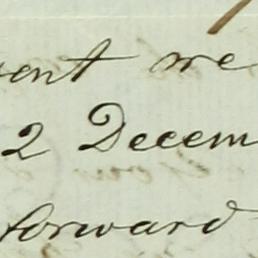 sent me
2 Decem
forward